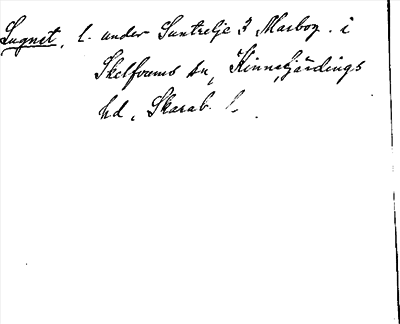 Lugnet, l. under Suntrelje 3 Marbog. i
Skelfvums sn, Kinnefjärdings
hd, Skarab. l.